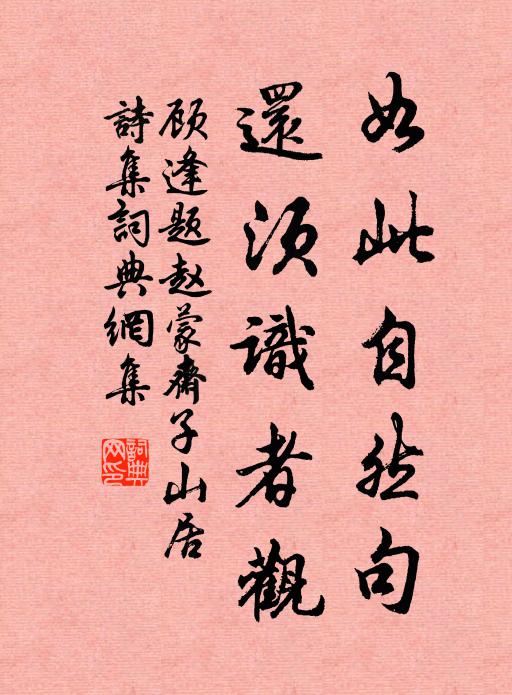 如此自然句
還須識者觀
顾逢题赵蒙齋子山居
詩集詞典網集
詞典網印